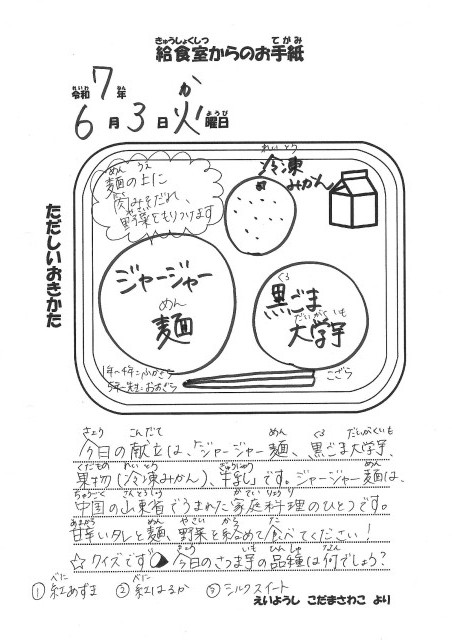 給食室からのお手紙
きゅうしょくしつ
てがみ
令和7年
れいわ
ねん
6月3日火曜日
か
ようび
ただしいおきかた
麺の上に
めん うえ
肉みそだれ、
野菜をもりつけます
冷凍
れいとう
みかん
ジャージャー
麺
めん
黒ごま
くろ
大学芋
だいがくいも
1年~4年:ふかざら
5年~先生:おおざら
こざら
きょう こんだて めん くろ だいがくいも
今日の献立は、「ジャージャー麺、黒ごま大学芋、
くだもの れいとう ぎゅうにゅう めん
果物(冷凍みかん)、牛乳」です。ジャージャー麺は、
ちゅうごく さんとうしょう かていりょうり
中国の山東省でうまれた家庭料理のひとつです。
あまから めん やさい から た
甘辛いタレと麺、野菜を絡めて食べてください!
きょう いも ひんしゅ なん
☆クイズです 今日のさつま芋の品種は何でしょう?
べに べに
①紅あずま ②紅はるか ③シルクスイート
えいようし こだまさわこ より